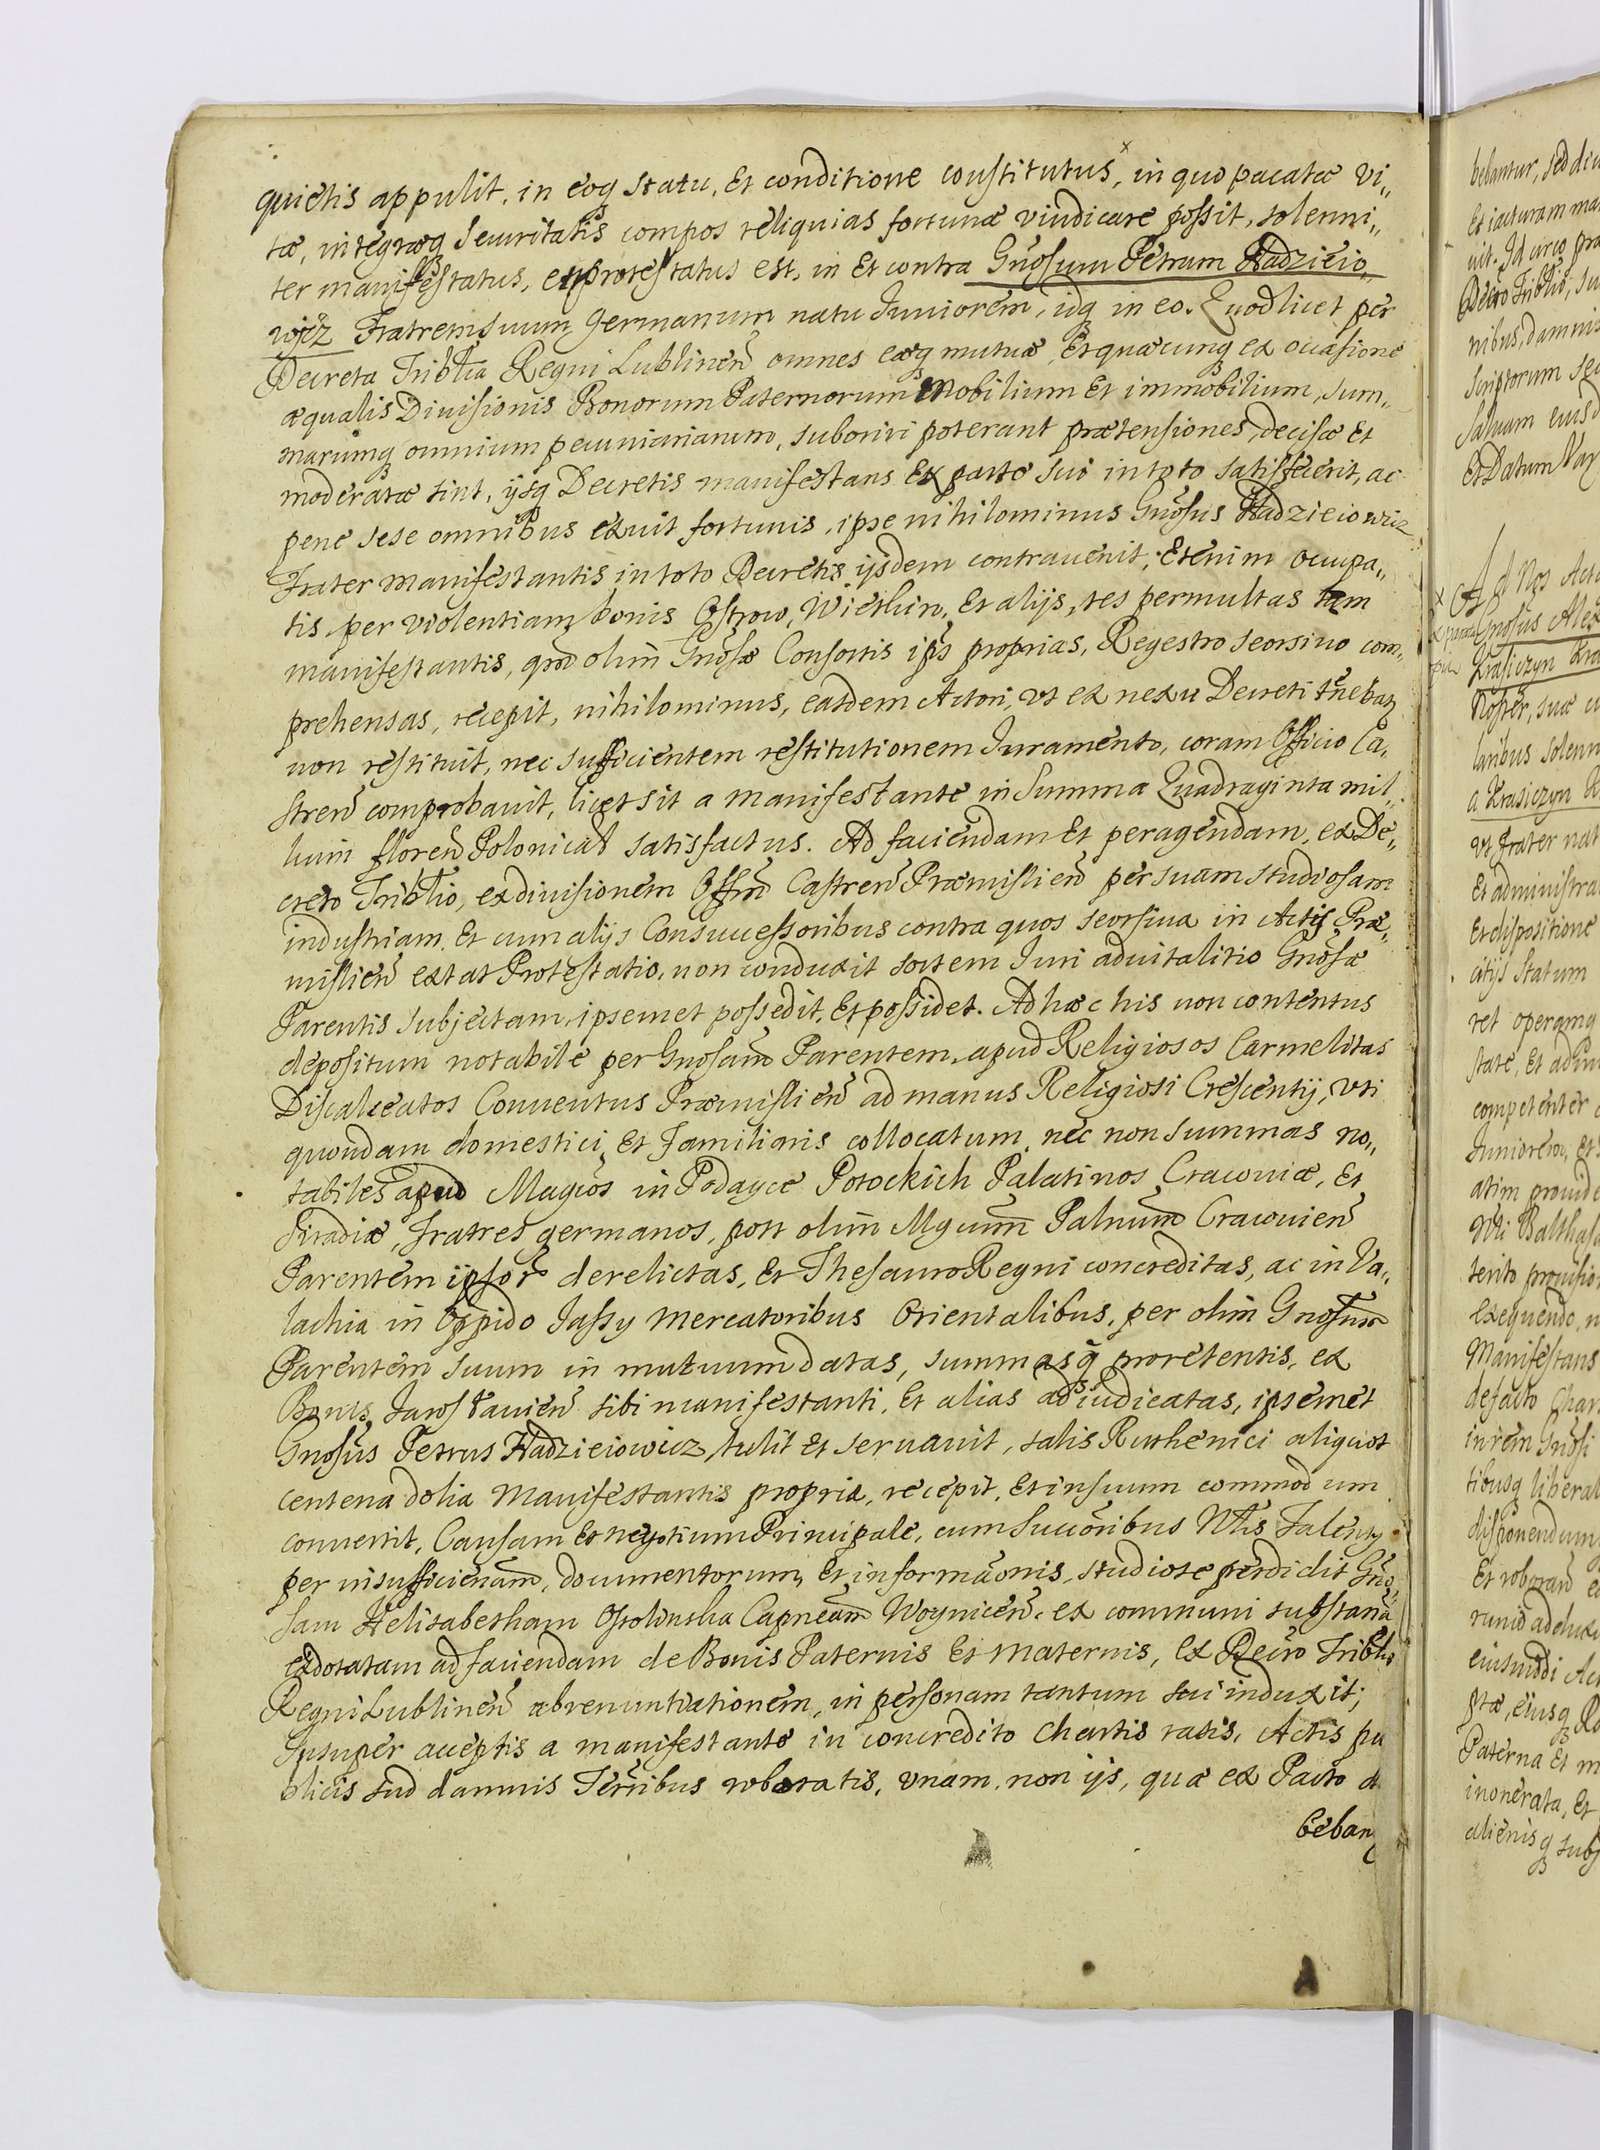 quietis appulit, in eoq statu, Et conditione constitutus, in quo pacatæ vi„
tæ, integræq securitatis compos reliquias fortunæ vindicare possit, solenni„
ter manifestatus, et protestatus est, in Et contra Gnosum Petrum Hadzieio„
wicz Fratrem suum germanum natu Iuniorem, idq in eo. Quod licet per
Decreta Triblia Regni Lublinen omnes eæq mutuæ, Et quæcunq ex occasione
æqualis Diuisionis Bonorum Paternorum Mobilium Et immobilium, sum„
marumq omnium pecuniariarum, suboriri poterant prætensiones, decisæ Et
moderatæ sint, ijsq Decretis manifestans Ex parte sui in toto satisfecerit, ac
pene sese omnibus exuit fortunis, ipse nihilominus Gnosus Hadzieiowicz
Frater manifestantis in toto Decretis ijsdem contrauenit, Etenim occupa„
tis per violentiam bonis Ostrow, Wietlin, Et alijs, res permultas tam
manifestantis, qm olim Gnosæ Consortis ips proprias, Regestro seorsiuo com„
prehensas, recepit, nihilominus, easdem Actori, vt ex nexu Decreti tnebat
non restituit, nec sufficientem restitutionem Iuramento, coram Officio Ca„
stren comprobauit, licet sit a manifestante in Summa Quadraginta mil„
lium floren Polonical satisfactus. Ad faciendam Et peragendam, ex De„
creto Triblio, exdiuisionem Castren Præmislien per suam studiosam
industriam, Et cum alijs Consuccessoribus contra quos seorsiua in Actis Præ„
mislien extat Protestatio, non conduxit sortem Iuri aduitalitio Gnosæ
Parentis subjectam, ipsemet possedit, Et possidet. Ad hæc his non contentus
depositum notabile per Gnosam Parentem, apud Religiosos Carmelitas
Discalceatos Conuentus Præmislien ad manus Religiosi Crescentij, vti
quondam domestici, Et Familiaris collocatum, nec non summas no„
tabiles apud Magcos in Podayce Potockich Palatinos Cracouiæ, Et
Siradiæ, Fratres germanos, post olim Mgcum Palnum Cracouien
Parentem ipsor derelictas, Et Thesauro Regni concreditas, ac in Va„
lachia in Oppido Jassy mercatoribus Orientalibus, per olim Gnosum
Parentem suum in mutuum datas, summasq proretentis, ex
Bonis Jaroslauien sibi manifestanti, Et alias adiudicatas, ipsemet
Gnosus Petrus Hadzieiowicz, tulit Et seruauit, salis Ruthenici aliquot
centena dolia Manifestantis propria, recepit, Et in suum commodum
conuertit, Causam Et negotium Principale, cum Succoribus Nlis
per insufficienam, documentorum, Et informaonis, studiose perdidit Gno„
sam Helisabetham Capneam Woynicen, ex communi substana
exdotatam ad faciendam de Bonis Paternis Et Maternis, Ex Decro Triblio
Regni Lublinen abrenuntiationem, in personam tantum sui induxit;
Insuper acceptis a manifestante in concredito chartis rasis, Actis pu
blicis sub damnis Terribus roboratis, vnam, non ijs, quæ ex Pacto de
beban

belantur, sed
Et iacturam ma
uit. Id circo pra
Decro Triblio, su
nibus, damnis
scriptorum se
Saluam eius
Et Datum Vay
Ad Nos Acta
Gnosus Alex
Krasiczyn Kra
Noster, suæ
laribus solenn
a Krasiczyn K
vt Frater nat
Et administra
Et dispositione
citijs statum
ret operamq
state, Et adim
competenter
Iuniorem, Et
atim prouide
Balthas
terito prouisio
Exequendo, n
Manifestans
de facto Char
in rem Gnosi
tibusq liberal
disponendum
Et roboran
eiusmodi Ac
ptæ, eiusq
Paterna Et m
inonerata, Et
alienisq subj